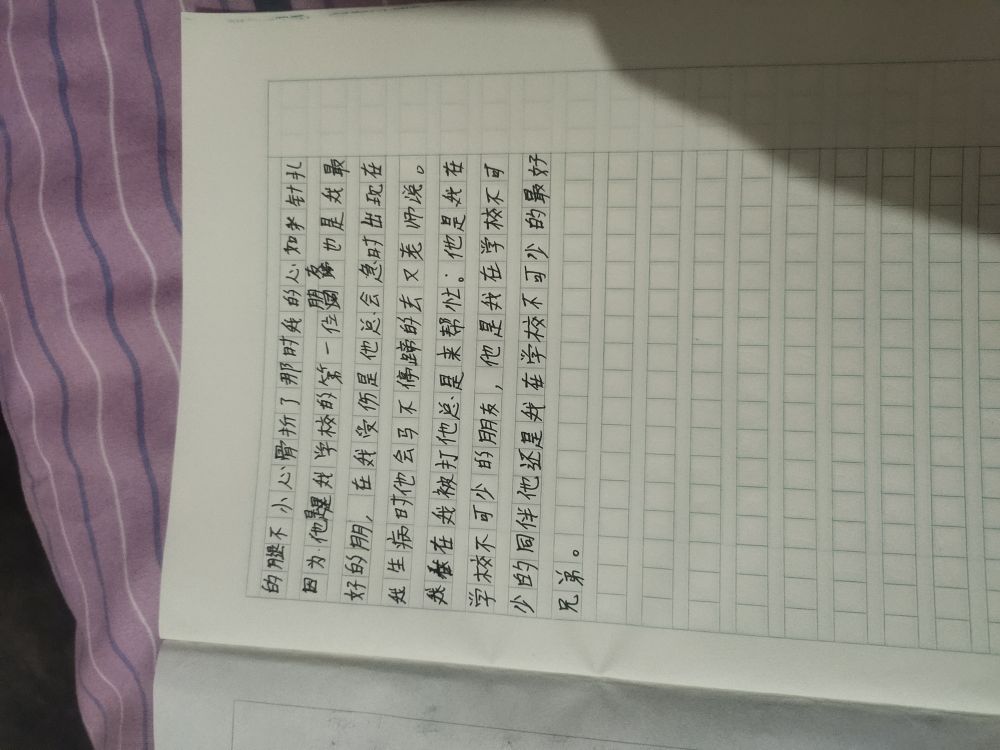 的腿不小心骨折了那时我的心如多针扎
因为.他是我学校的第一位朋友也是我最
好的朋，在我受伤是他总会急时出现在
我生病时他会马不停蹄的去又老师说。
在我被打他总是来帮忙：他是我在
学校不可少的朋友，他是我在学校不可
少的同伴他还是我在学校不可少的最好
兄弟。